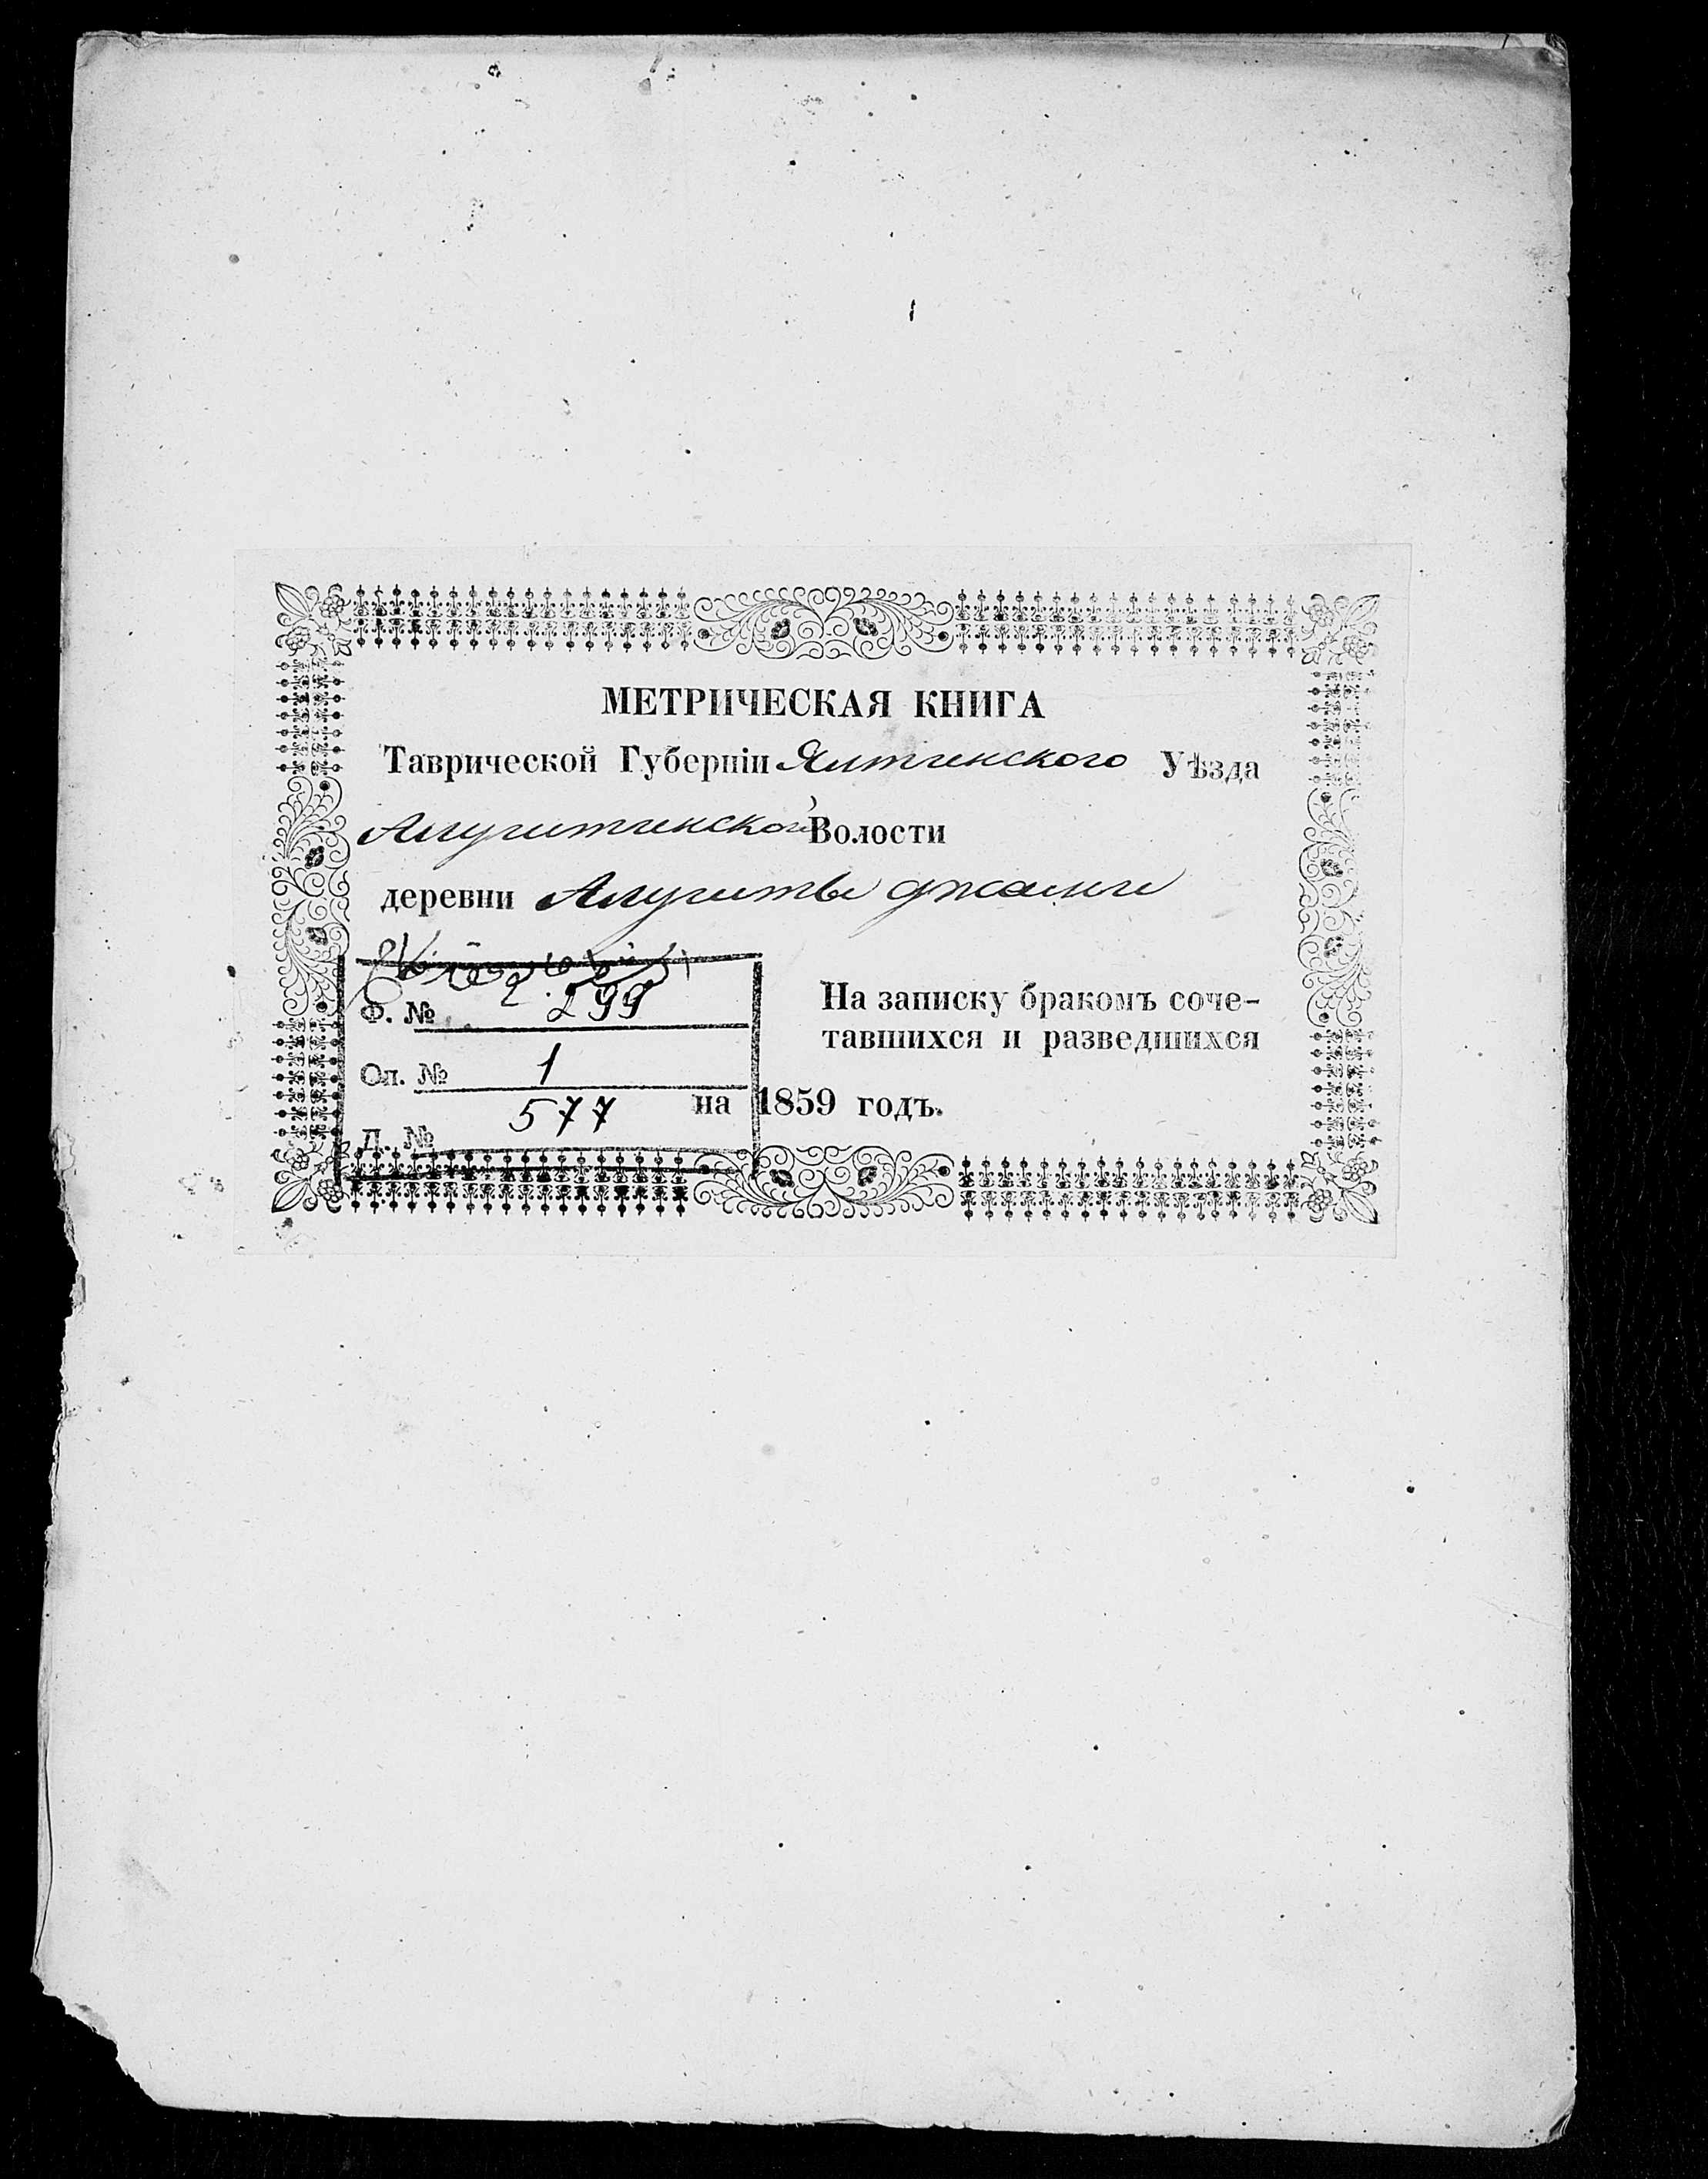 МЕТРИЧЕСКАЯ КНИГА
Таврической Губерніи Ялтинского Уѣзда
Алуштинской Волости
деревни Алушты джами
На записку бракомъ соче-
тавшихся и разведшихся
на 1859 годъ.
Ф. № 299
Оп. № 1
Д. № 577